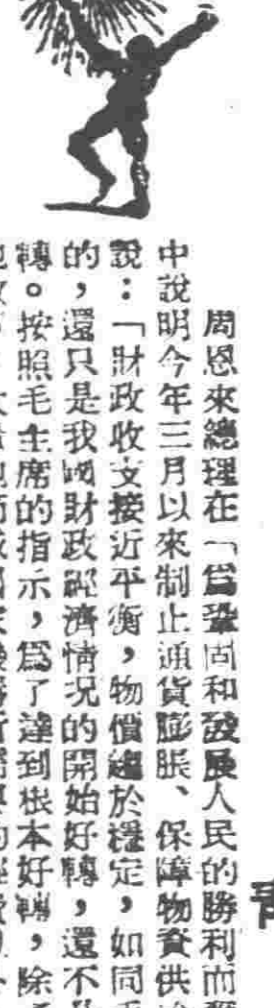 周恩來總理在「爲鞏固和發展人民的勝利而
中說明今年三月以來制止通貨膨脹、保障物資供
說：「財政收支接近平衡，物價趨於穩定，如同
的，還只是我國財政經濟情况的開始好轉，還不
轉。按照毛主席的指示，爲了達到根本好轉，除